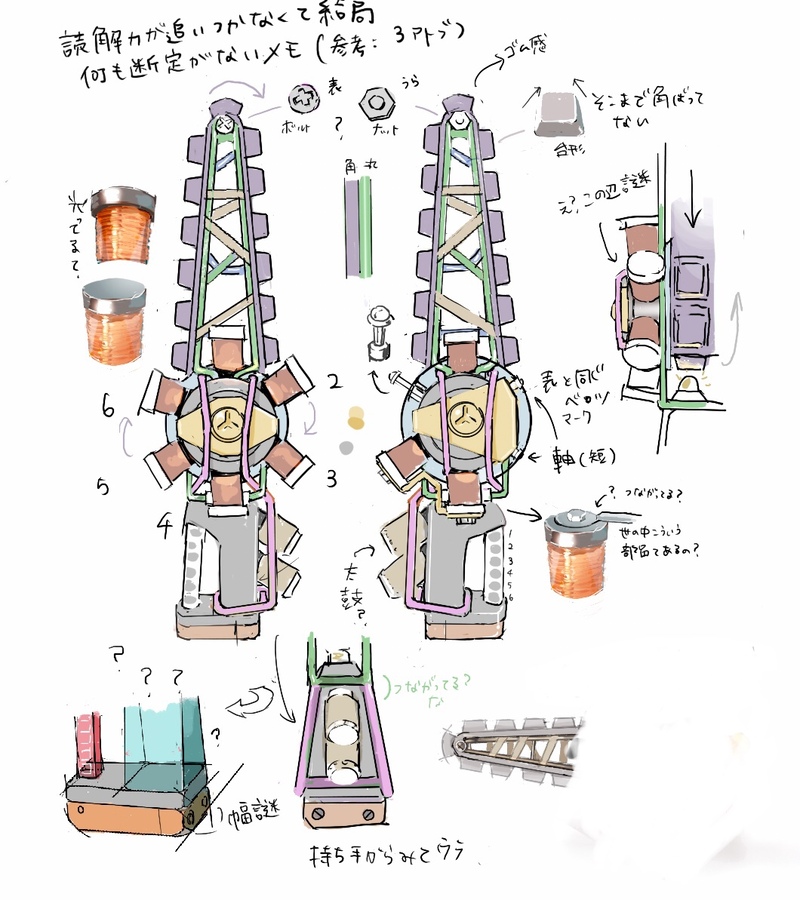 読解力が追いつかなくて結局
何も断定がないメモ(参考:3アトブ)
表
ボルト
?
うら
ナット
ゴム感
台形
そこまで角ばって
ない
角 丸
光ってるて?
え?,この辺謎
表と同じ
ベロツ
マーク
軸(短)
2
3
4
5
6
1
2
3
4
5
6
太鼓?
? つながってる?
世の中こういう
部品てあるの?
つながってる?
な
? ? ?
?
幅謎
持ち手からみてウラ